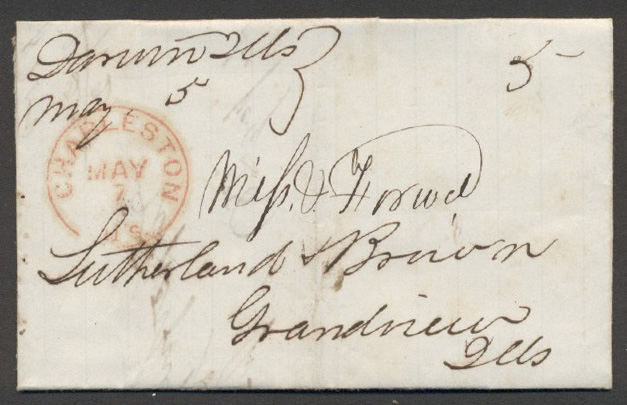 Darwin Ills
May 5
5
CHARLESTON
MAY
7
Ills
Miss. & Forwd
Sutherland & Brown
Grandview
Ills